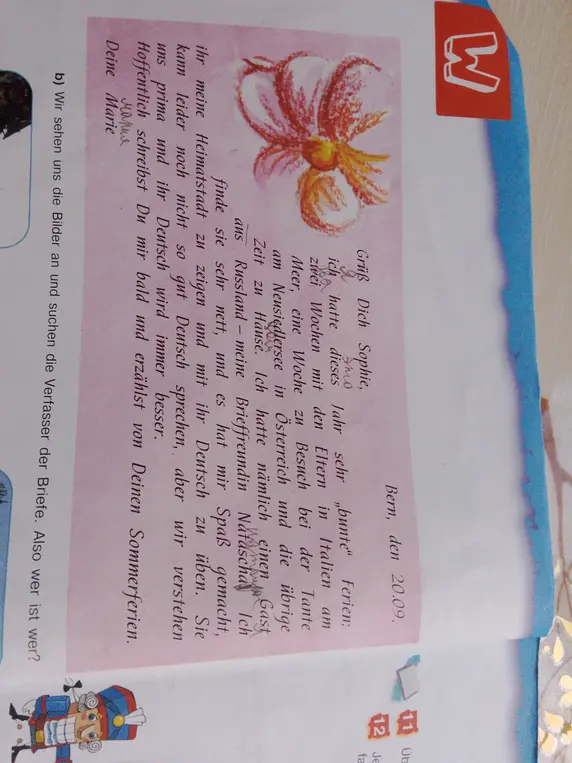 W
Bern, den 20.09.
Grüß Dich Sophie,
ich hatte dieses Jahr sehr „bunte“ Ferien:
zwei Wochen mit den Eltern in Italien am
Meer, eine Woche zu Besuch bei der Tante
am Neusiedersee in Österreich und die übrige
Zeit zu Hause. Ich hatte nämlich einen Gast
aus Russland – meine Brieffreundin Natascha. Ich
finde sie sehr nett, und es hat mir Spaß gemacht,
ihr meine Heimatstadt zu zeigen und mit ihr Deutsch zu üben. Sie
kann leider noch nicht so gut Deutsch sprechen, aber wir verstehen
uns prima und ihr Deutsch wird immer besser.
Hoffentlich schreibst Du mir bald und erzählst von Deinen Sommerferien.
Deine Marie
b) Wir sehen uns die Bilder an und suchen die Verfasser der Briefe. Also wer ist wer?
11 Üb
12 Je